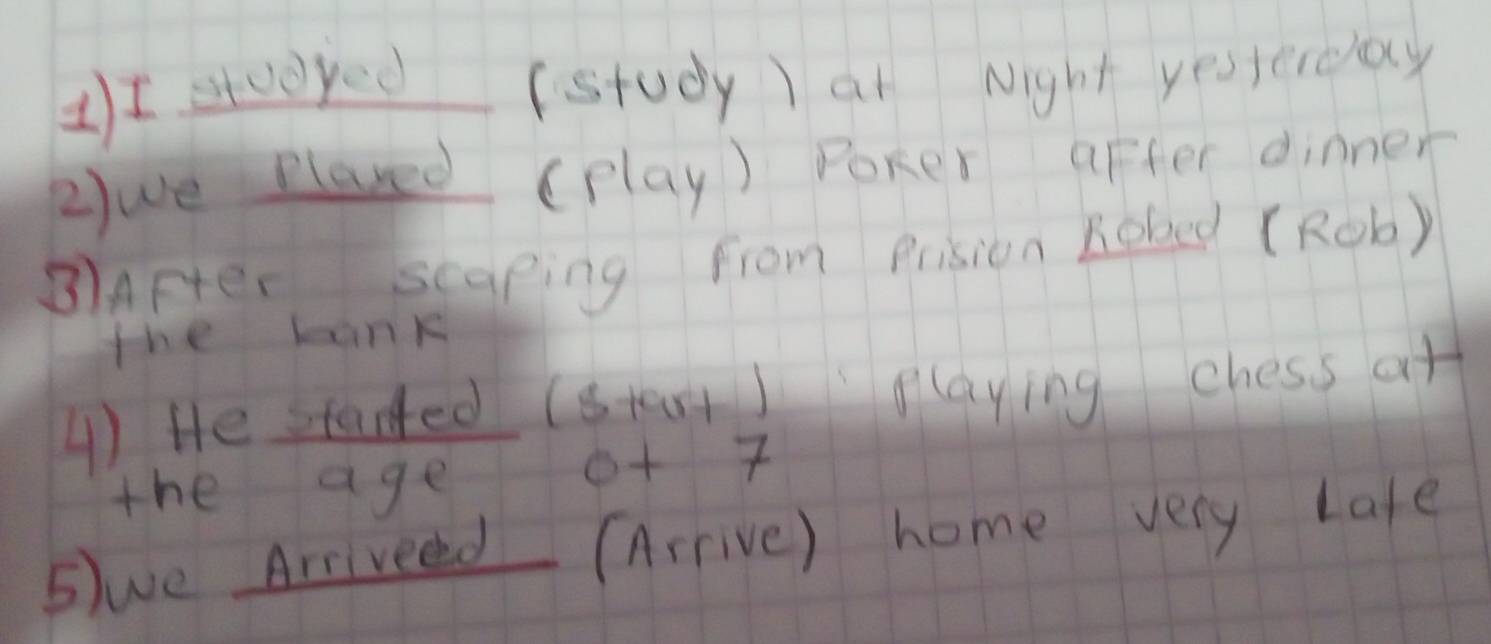 1) I studyed (study) at Night yesterday
2) we Played (Play) Poker after dinner
3) After scaping from Prision Robed (Rob)
the bank
4) He started (start) Playing chess at
the age of 7
5) we Arriveed (Arrive) home very Late